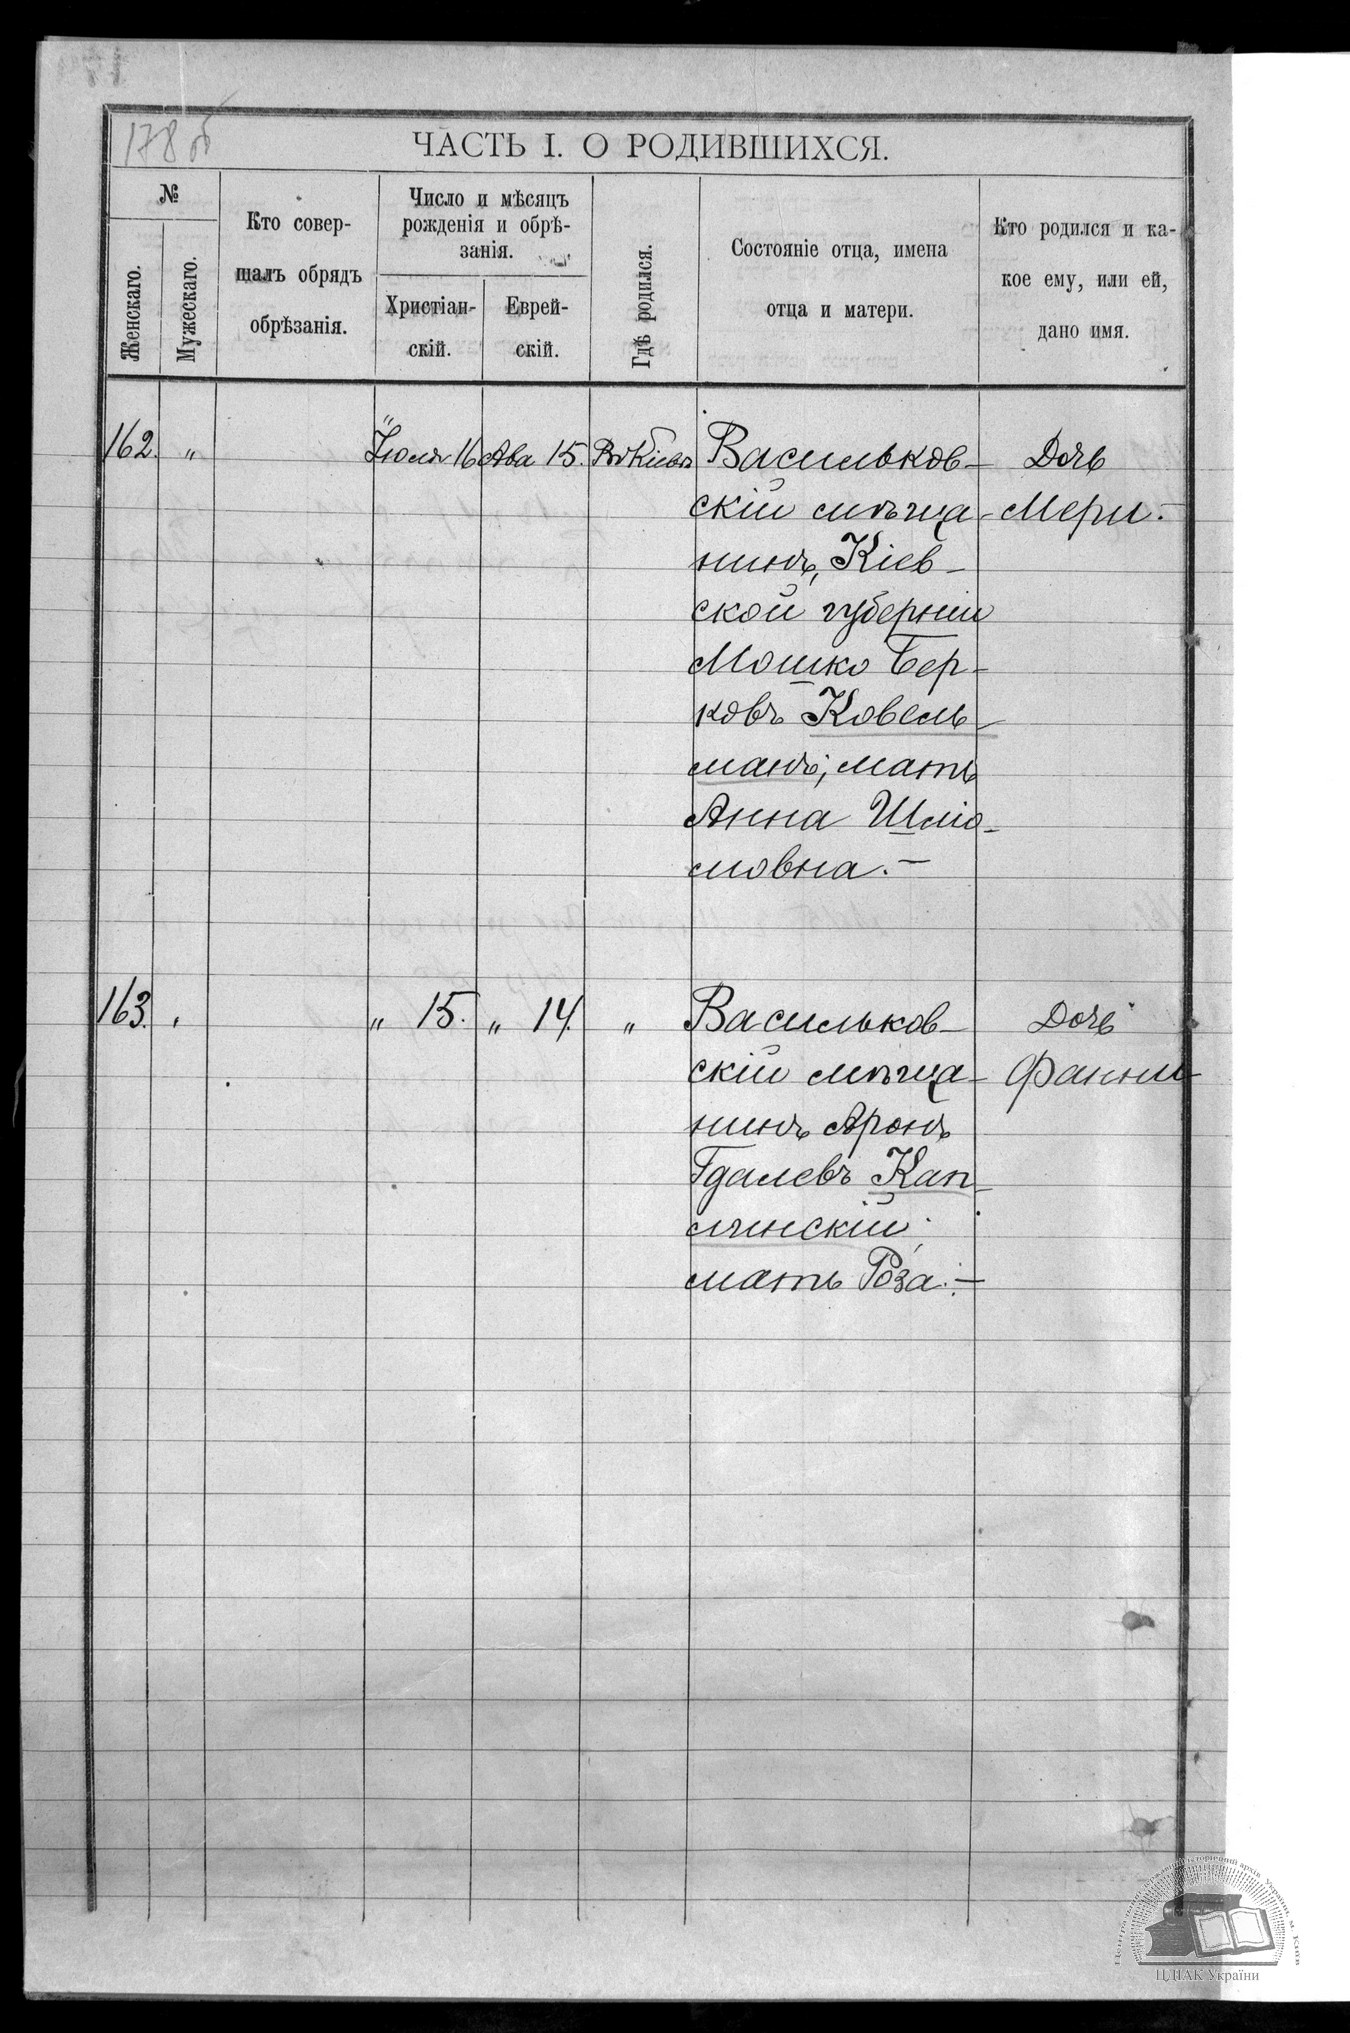 178 об
ЧАСТЬ I. О РОДИВШИХСЯ.
№
Женскаго.
Мужескаго.
Кто совер-
шалъ обрядъ
обрѣзанія.
Число и мѣсяцъ
рожденія и обрѣ-
занія.
Христіан-
скій.
Еврей-
скій.
Гдѣ родился.
Состояніе отца, имена
отца и матери.
Кто родился и ка-
кое ему, или ей,
дано имя.
162. „ Іюля 16 Ава 15. Въ Кіевѣ Васильков- Дочь
скій мѣща- Мери.-
нинъ, Кіев-
ской губерніи
Мошко Бер-
ковъ Ковель-
манъ; мать
Анна Шліо-
мовна.-
163. „ „ 15. „ 14. „ Васильков- Дочь
скій мѣща- Фанни-
нинъ Аронъ
Гдалевъ Кап-
личскій;
мать Роза.-
ЦДІАК України